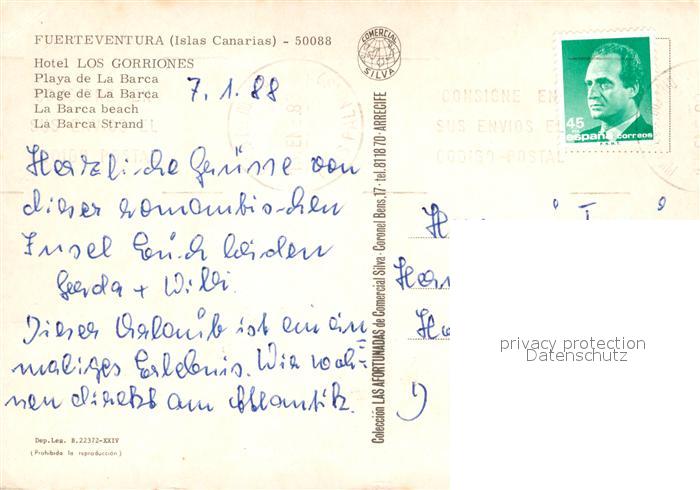 FUERTEVENTURA (Islas Canarias) - 50088
Hotel LOS GORRIONES
Playa de La Barca
Plage de La Barca
La Barca beach
La Barca Strand
7.1.88
Herzliche Grüsse von
dieser romantischen
Insel Euch beiden
Gerda + Willi.
Dieser Urlaub ist ein ein
maliges Erlebnis. Wir woh=
nen direkt am Atlantik.
Dep.Leg. B.22372-XXIV
(Prohibida la reproducción)
COMERCIAL
SILVA
Colección LAS AFORTUNADAS de Comercial Silva - Coronel Bens, 17 - tel. 81 18 70 - ARRECIFE
CONSIGNE EN
SUS ENVIOS EL
CODIGO POSTAL
45
españa correos
F.N.M.T.
privacy protection
Datenschutz